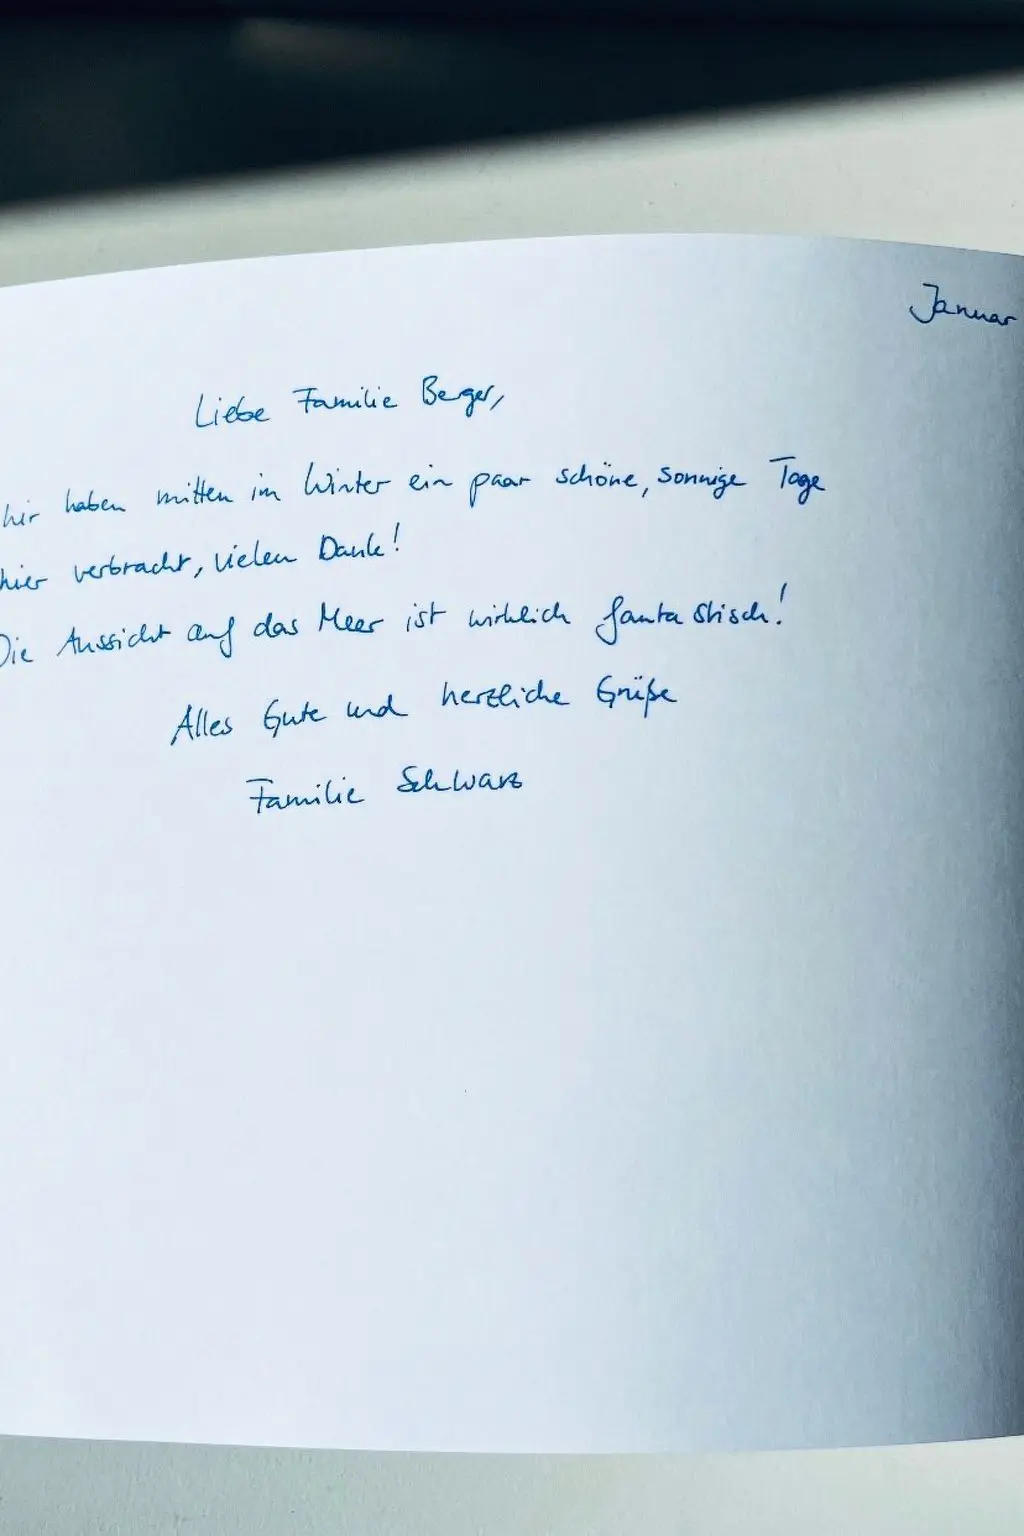 Januar
Liebe Familie Berger,
wir haben mitten im Winter ein paar schöne, sonnige Tage
hier verbracht, vielen Dank!
Die Aussicht auf das Meer ist wirklich fantastisch!
Alles Gute und herzliche Grüße
Familie Schwarz